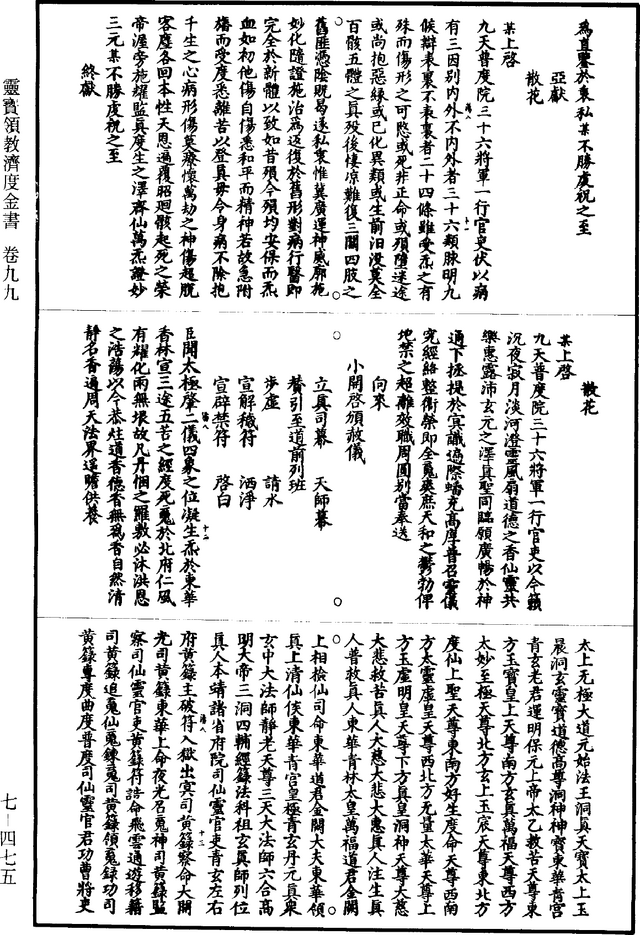 為直鑒於衷私某不勝虔祝之至
亞獻
散花
某上啓
九天普度院三十六將軍一行官吏伏以病
有三因別内外不内外者三十六類脉明九
候辯表裏不表裏者二十四條雖受炁之有
殊而傷形之可愍或死非正命或殞墮迷途
或尚抱惡緣或已化異類或生前汩没莫全
百骸五體之真殁後悽凉難復三關四肢之
舊匪憑陰貺曷遂私衷惟冀廣運神威廓施
妙化隨證施治為返復於舊形對病行醫即
完全於新體以致如昔殞今殞均安保而炁
血如初他傷自傷悉和平而精神若故急附
旛而受度悉離苦以登真毋令身病不除抱
千生之心病形傷莫療懷萬劫之神傷超脱
客塵各回本性天恩遍覆昭迴骸起死之榮
帝渥旁施耀監真度生之澤齊仙萬炁證妙
三元某不勝虔祝之至
終獻
散花
某上啓
九天普度院三十六將軍一行官吏以今籟
沉夜寂月淡河澄雲風扇道德之香仙靈共
樂惠露沛玄元之澤真聖同臨願廣暢於神
通下拯提於㝠識遏際蟠充高厚普召靈儀
究經絡整衛榮即全䰟爽庶天和之鬱勃俾
地禁之超離效職周圓别當奉送
向來
小開啓頒赦儀
立真司幕 天師幕
賛引至道前列班
步虛 請水
宣解穢符 洒淨
宣辟禁符 啓白
臣聞太極肇二儀四象之位凝生炁於東華
香林宣三途五苦之經度死䰟於北府仁風
有耀化雨無垠故凡丹悃之羅敷必沐洪恩
之浩蕩以今恭炷道香德香無為香自然清
靜名香遍周天法界遥瞻供養
太上無極大道元始法王洞真天寶太上玉
晨洞玄靈寶道德高尊洞神神寶東華青宮
青玄老君運明保元上帝太乙救苦天尊東
方玉寶皇上天尊南方玄真萬福天尊西方
太妙至極天尊北方玄上玉宸天尊東北方
度仙上聖天尊東南方好生度命天尊西南
方太靈虛皇天尊西北方无量太華天尊上
方玉虛明皇天尊下方真皇洞神天尊大慈
大悲救苦真人大慈大悲大惠真人注生真
人普救真人東華青林太皇萬福道君金闕
上相撿仙司命東華道君金闕大夫東華領
真上清仙侯東華青宮皇極青玄丹元真衆
玄中大法師靜老天尊三天大法師六合高
明大帝三洞四輔經籙法科祖玄真師列位
真人本靖諸省府院司仙靈官吏青玄左右
府黄籙主破符入獄出㝠司黄籙察命大開
光司黄籙東華上命夜光召䰟神司黄籙監
察司仙靈官吏黄籙符誥命飛雲通遊移籍
司黄籙追䰟仙䰟鍊䰟司黄籙領䰟錄功司
黄籙專度曲度普度司仙靈官君功曹將吏
靈寶領教濟度金書 卷九九
七－四七五